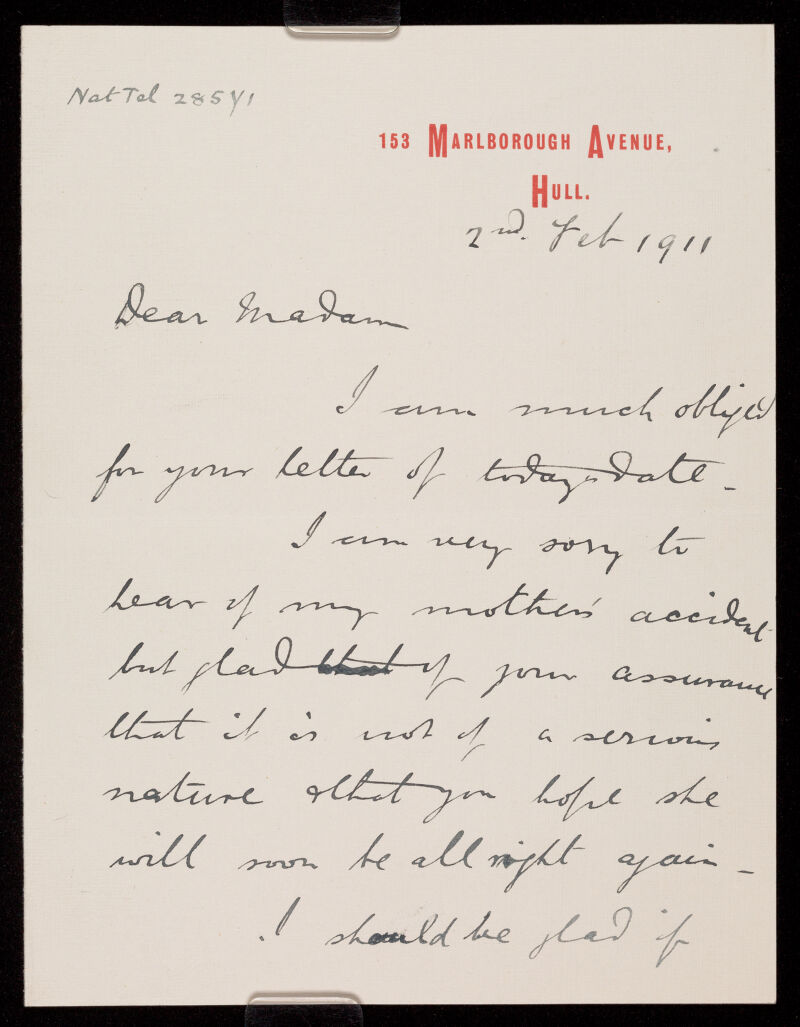 Nat Tel 285Y1
153 MARLBOROUGH AVENUE,
HULL.
2nd. Feb 1911
Dear Madam
I am much obliged
for your letter of todays date -
I am very sorry to
hear of my mother's accident
but glad that of your assurance
that it is not of a serious
nature & that you hope she
will soon be all right again -
I should be glad if